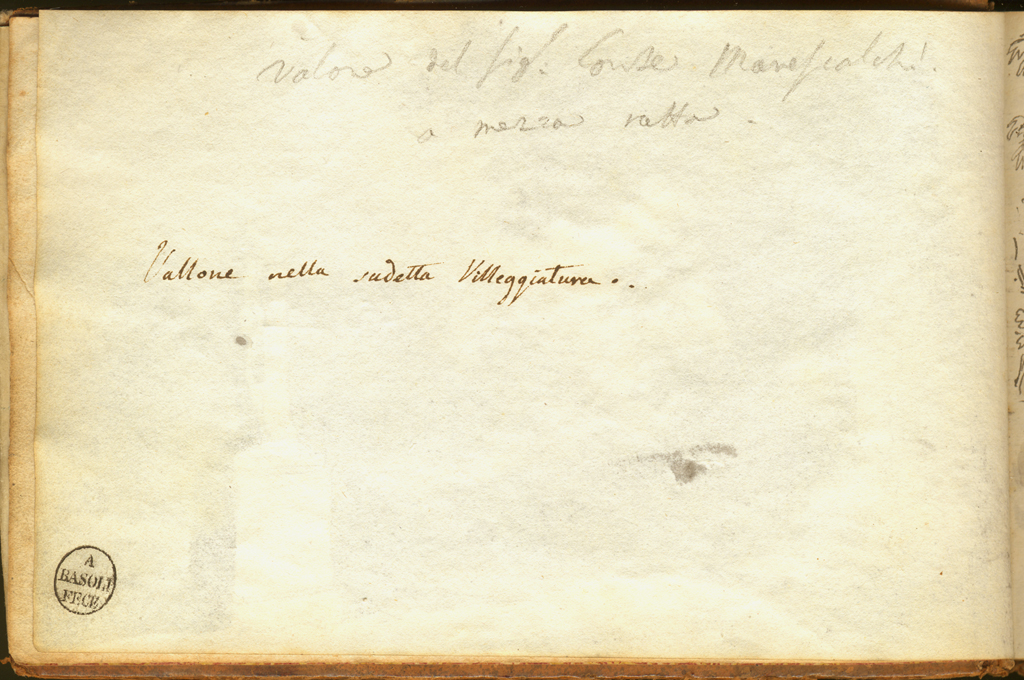 Valone del Sig. Conte Marescalchi.
a mezza ratta.
Vallone nella sudetta Villeggiatura..
A
BASOLI
FECE